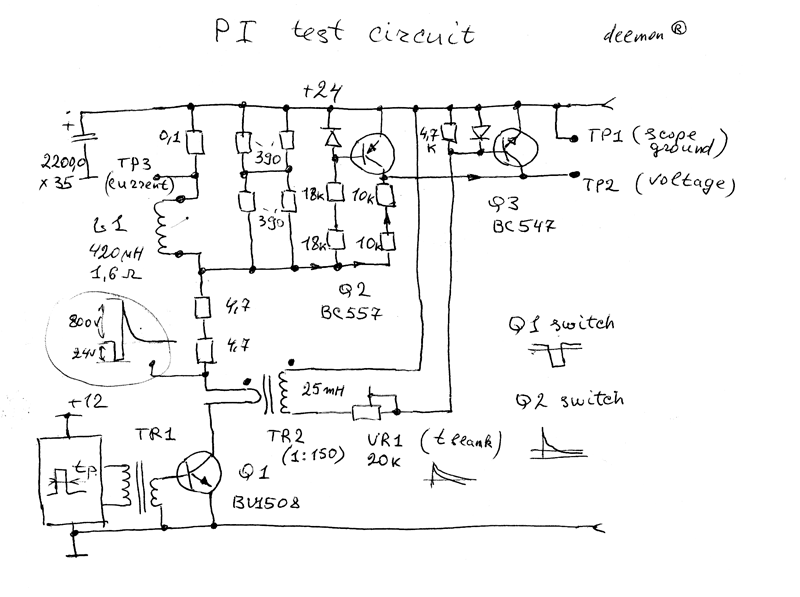 PI test circuit
deemon ®
+24
+
0,1
390
4,7
K
TP1 (scope
ground)
2200,0
x 35
TP3
(current)
18k
10k
TP2 (voltage)
L1
390
Q3
BC547
420 µH
1,6 Ω
18k
10k
Q2
BC557
4,7
800v
24v
4,7
Q1 switch
25mH
Q2 switch
+12
TR1
TR2
(1:150)
VR1
20K
(t blank)
tp
Q1
BU1508